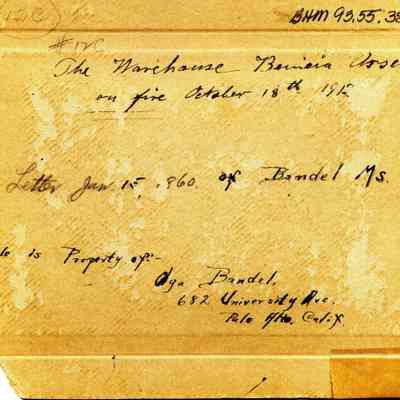 12C
BHM 93.55.38
#12C
The Warehouse Benicia Arse
on fire October 18th 191
Letter Jan 15, 1960 of Bandel Ms.
is Property of:-
Olga Bandel.
682 University Ave.
Palo Alto. Calif.